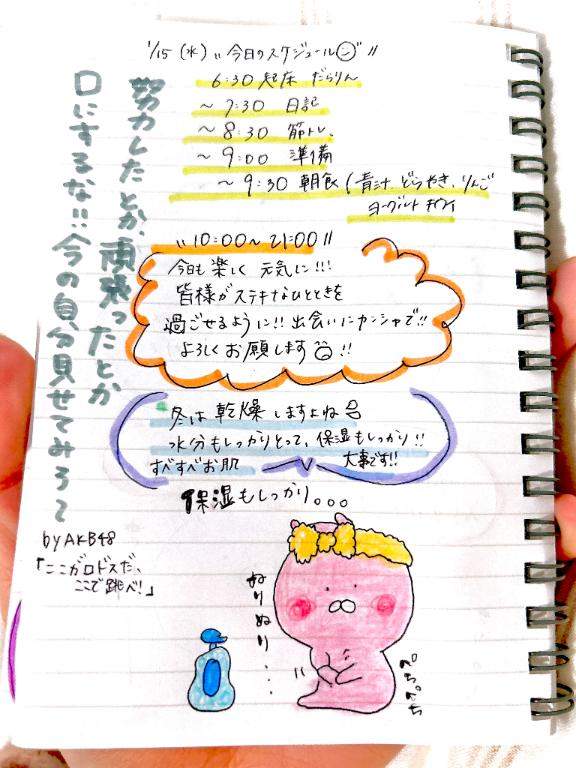 1/15(水) "今日のスケジュール"
6:30 起床 だらりん
〜7:30 日記
〜8:30 筋トレ、
〜9:00 準備
〜9:30 朝食(青汁、どらやき、りんご
ヨーグルト キウイ
"10:00〜21:00"
今日も楽しく 元気に!!!
皆様がステキなひとときを
過ごせるように!! 出会いにカンシャで!!
よろしくお願します!!
冬は乾燥しますよね
水分もしっかりとって、保湿もしっかり!!
すべすべお肌 大事です!!
保湿もしっかり。。。
努力したとか、頑張ったとか
口にするな!!今の自分見せてみろ〜
by AKB48
「ここがロドスだ、
ここで跳べ!」
ぬりぬり...
ぺちぺち